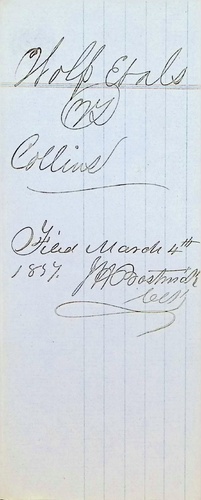 Wolf Et als
VS
Collins
Filed March 4th
1857. J A Bostwick
Clk